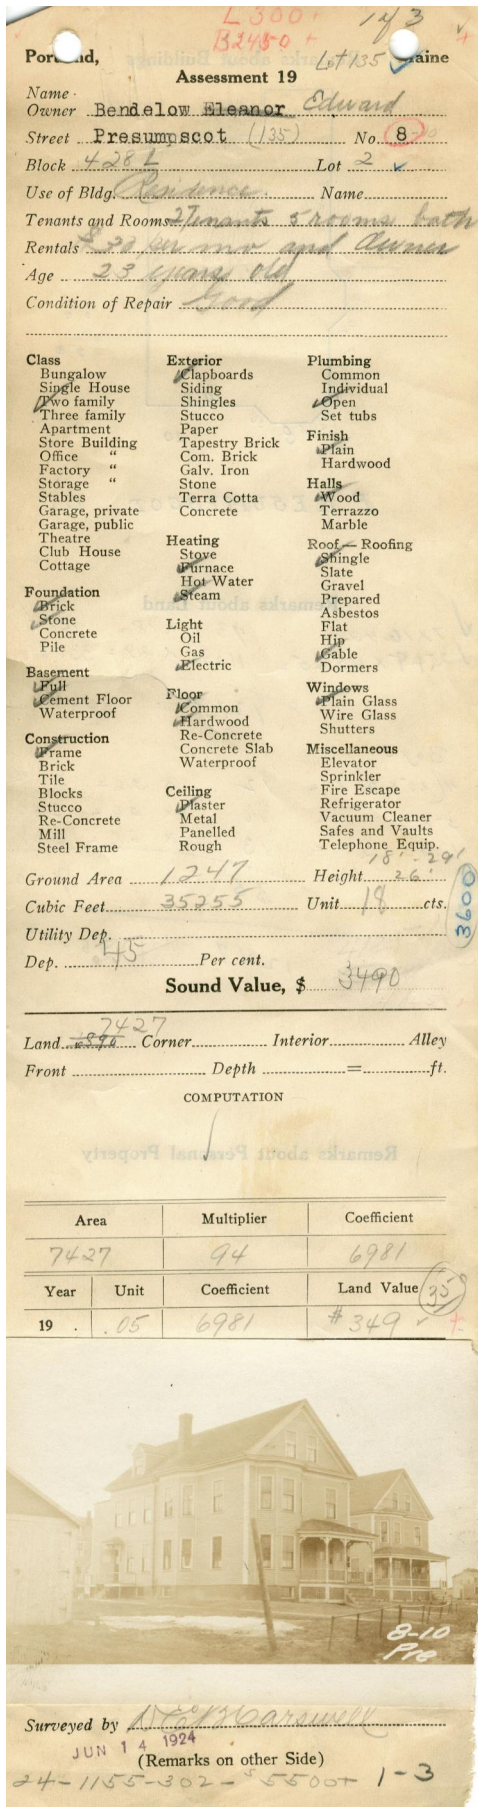 L 300 +
1 of 3
B2450 +
Portland, Maine
Lot 135
Assessment 19
Name
Owner Bendelow Eleanor Edward
Street Presumpscot (135) No. 8-10
Block 428 L Lot 2
Use of Bldg. Residence. Name
Tenants and Rooms 2 Tenants 5 rooms bath
Rentals $30 per mo and Owner
Age 23 years old
Condition of Repair Good
Class
Bungalow
Single House
Two family
Three family
Apartment
Store Building
Office "
Factory "
Storage "
Stables
Garage, private
Garage, public
Theatre
Club House
Cottage
Foundation
Brick
Stone
Concrete
Pile
Basement
Full
Cement Floor
Waterproof
Construction
Frame
Brick
Tile
Blocks
Stucco
Re-Concrete
Mill
Steel Frame
Exterior
Clapboards
Siding
Shingles
Stucco
Paper
Tapestry Brick
Com. Brick
Galv. Iron
Stone
Terra Cotta
Concrete
Heating
Stove
Furnace
Hot Water
Steam
Light
Oil
Gas
Electric
Floor
Common
Hardwood
Re-Concrete
Concrete Slab
Waterproof
Ceiling
Plaster
Metal
Panelled
Rough
Plumbing
Common
Individual
Open
Set tubs
Finish
Plain
Hardwood
Halls
Wood
Terrazzo
Marble
Roof — Roofing
Shingle
Slate
Gravel
Prepared
Asbestos
Flat
Hip
Gable
Dormers
Windows
Plain Glass
Wire Glass
Shutters
Miscellaneous
Elevator
Sprinkler
Fire Escape
Refrigerator
Vacuum Cleaner
Safes and Vaults
Telephone Equip.
18' - 29'
Ground Area 1247 Height 26'
Cubic Feet 35255 Unit 18 cts.
3600
Utility Dep.
Dep. 45 Per cent.
Sound Value, $ 3490
7427
Land Corner Interior Alley
Front Depth = ft.
COMPUTATION
Area Multiplier Coefficient
7427 94 6981
Year Unit Coefficient Land Value 350
19 . .05 6981 # 349
8-10
Pre
Surveyed by
JUN 14 1924
(Remarks on other Side)
24-1155-302-$5500+ 1-3